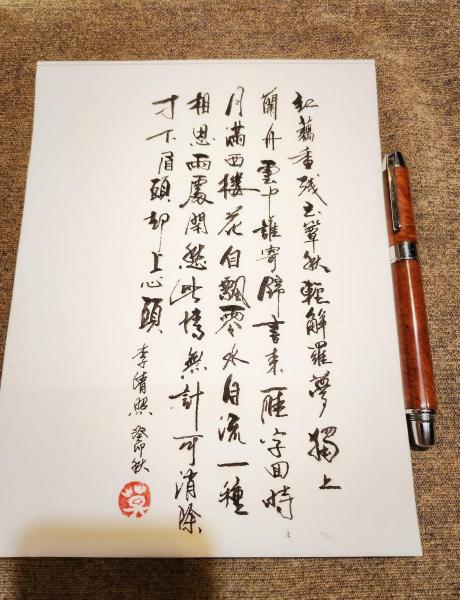 紅藕香残玉簟秋輕解羅裳獨上
蘭舟雲中誰寄錦書来雁字回時
月滿西樓花自飄零水自流一種
相思兩處閑愁此情無計可消除
才下眉頭却上心頭 李清照 癸卯秋